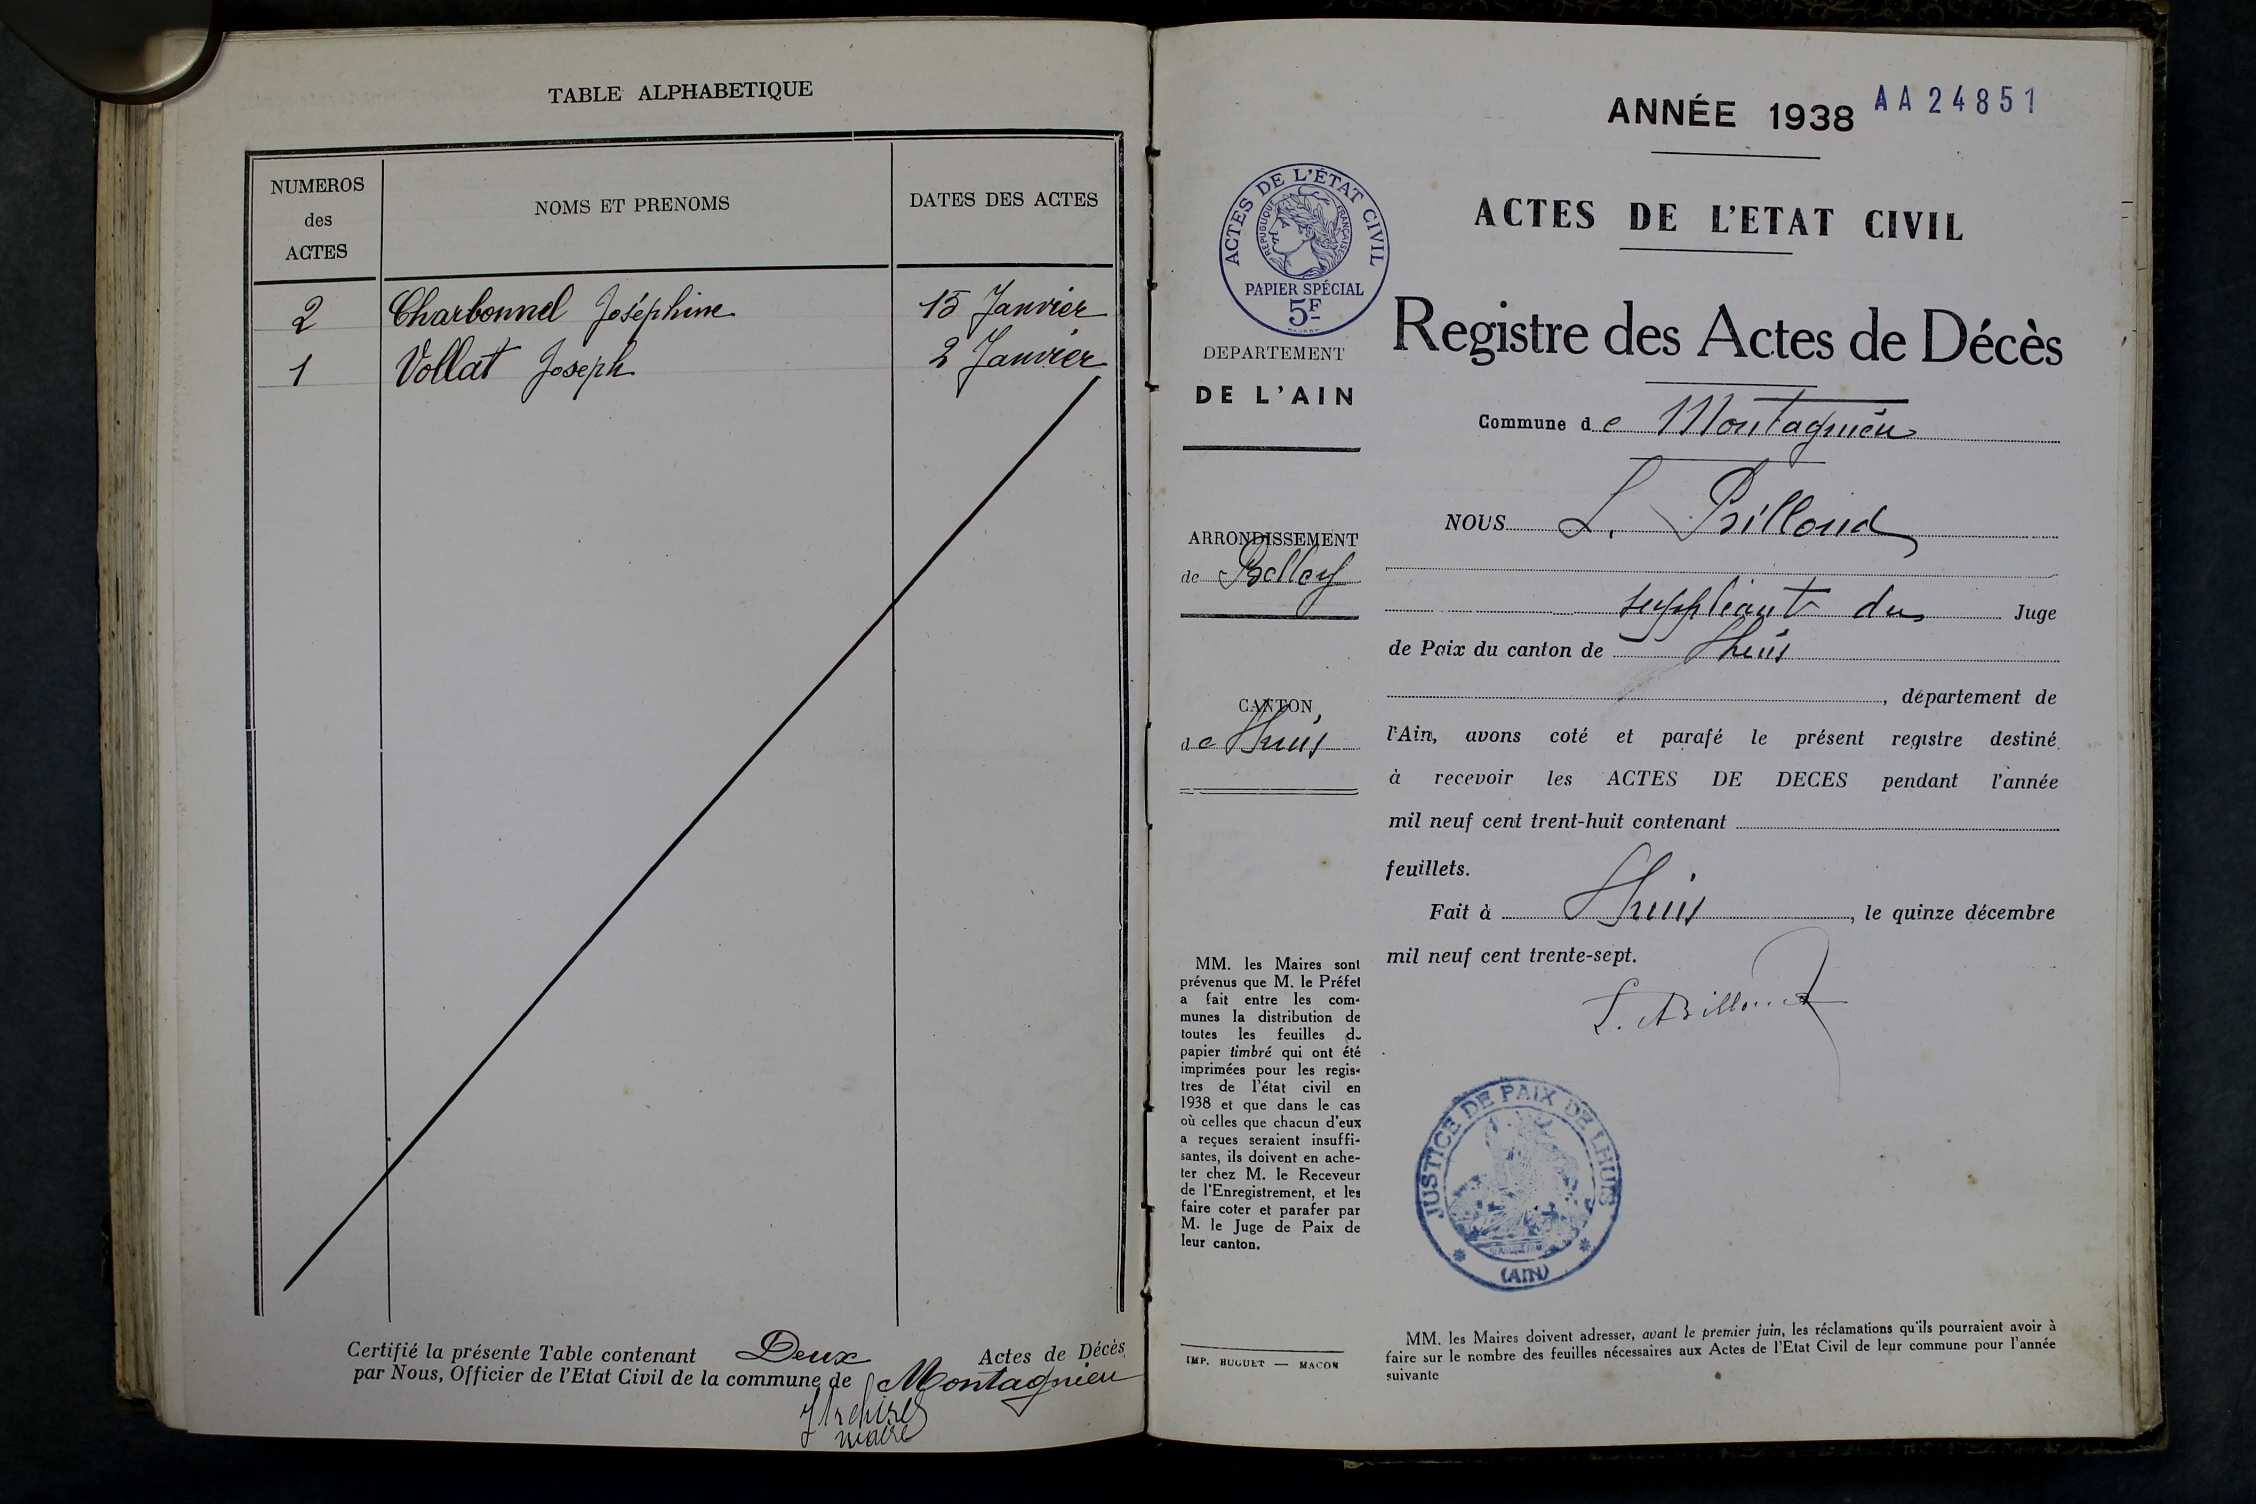 TABLE ALPHABETIQUE
NUMEROS
des
ACTES
NOMS ET PRENOMS
DATES DES ACTES
2 Charbonnel Joséphine 15 Janvier
1 Vollat Joseph 2 Janvier
Certifié la présente Table contenant Deux Actes de Décès
par Nous, Officier de l'Etat Civil de la commune de Montagnieu
maire
ANNÉE 1938 AA24851
ACTES DE L'ÉTAT CIVIL
RÉPUBLIQUE FRANÇAISE
PAPIER SPÉCIAL
5F
DEPARTEMENT
DE L'AIN
ARRONDISSEMENT
de Belley
CANTON
de Lhuis
MM. les Maires sont
prévenus que M. le Préfet
a fait entre les com-
munes la distribution de
toutes les feuilles de
papier timbré qui ont été
imprimées pour les regis-
tres de l'état civil en
1938 et que dans le cas
où celles que chacun d'eux
a reçues seraient insuffi-
santes, ils doivent en ache-
ter chez M. le Receveur
de l'Enregistrement, et les
faire coter et parafer par
M. le Juge de Paix de
leur canton.
IMP. BUGUET — MACON
ACTES DE L'ETAT CIVIL
Registre des Actes de Décès
Commune de Montagnieu
NOUS L. Billoud
suppléant du Juge
de Paix du canton de Lhuis
, département de
l'Ain, avons coté et parafé le présent registre destiné
à recevoir les ACTES DE DECES pendant l'année
mil neuf cent trent-huit contenant
feuillets.
Fait à Lhuis, le quinze décembre
mil neuf cent trente-sept.
L. Billoud
JUSTICE DE PAIX DE LHUIS
(AIN)
MM. les Maires doivent adresser, avant le premier juin, les réclamations qu'ils pourraient avoir à
faire sur le nombre des feuilles nécessaires aux Actes de l'Etat Civil de leur commune pour l'année
suivante